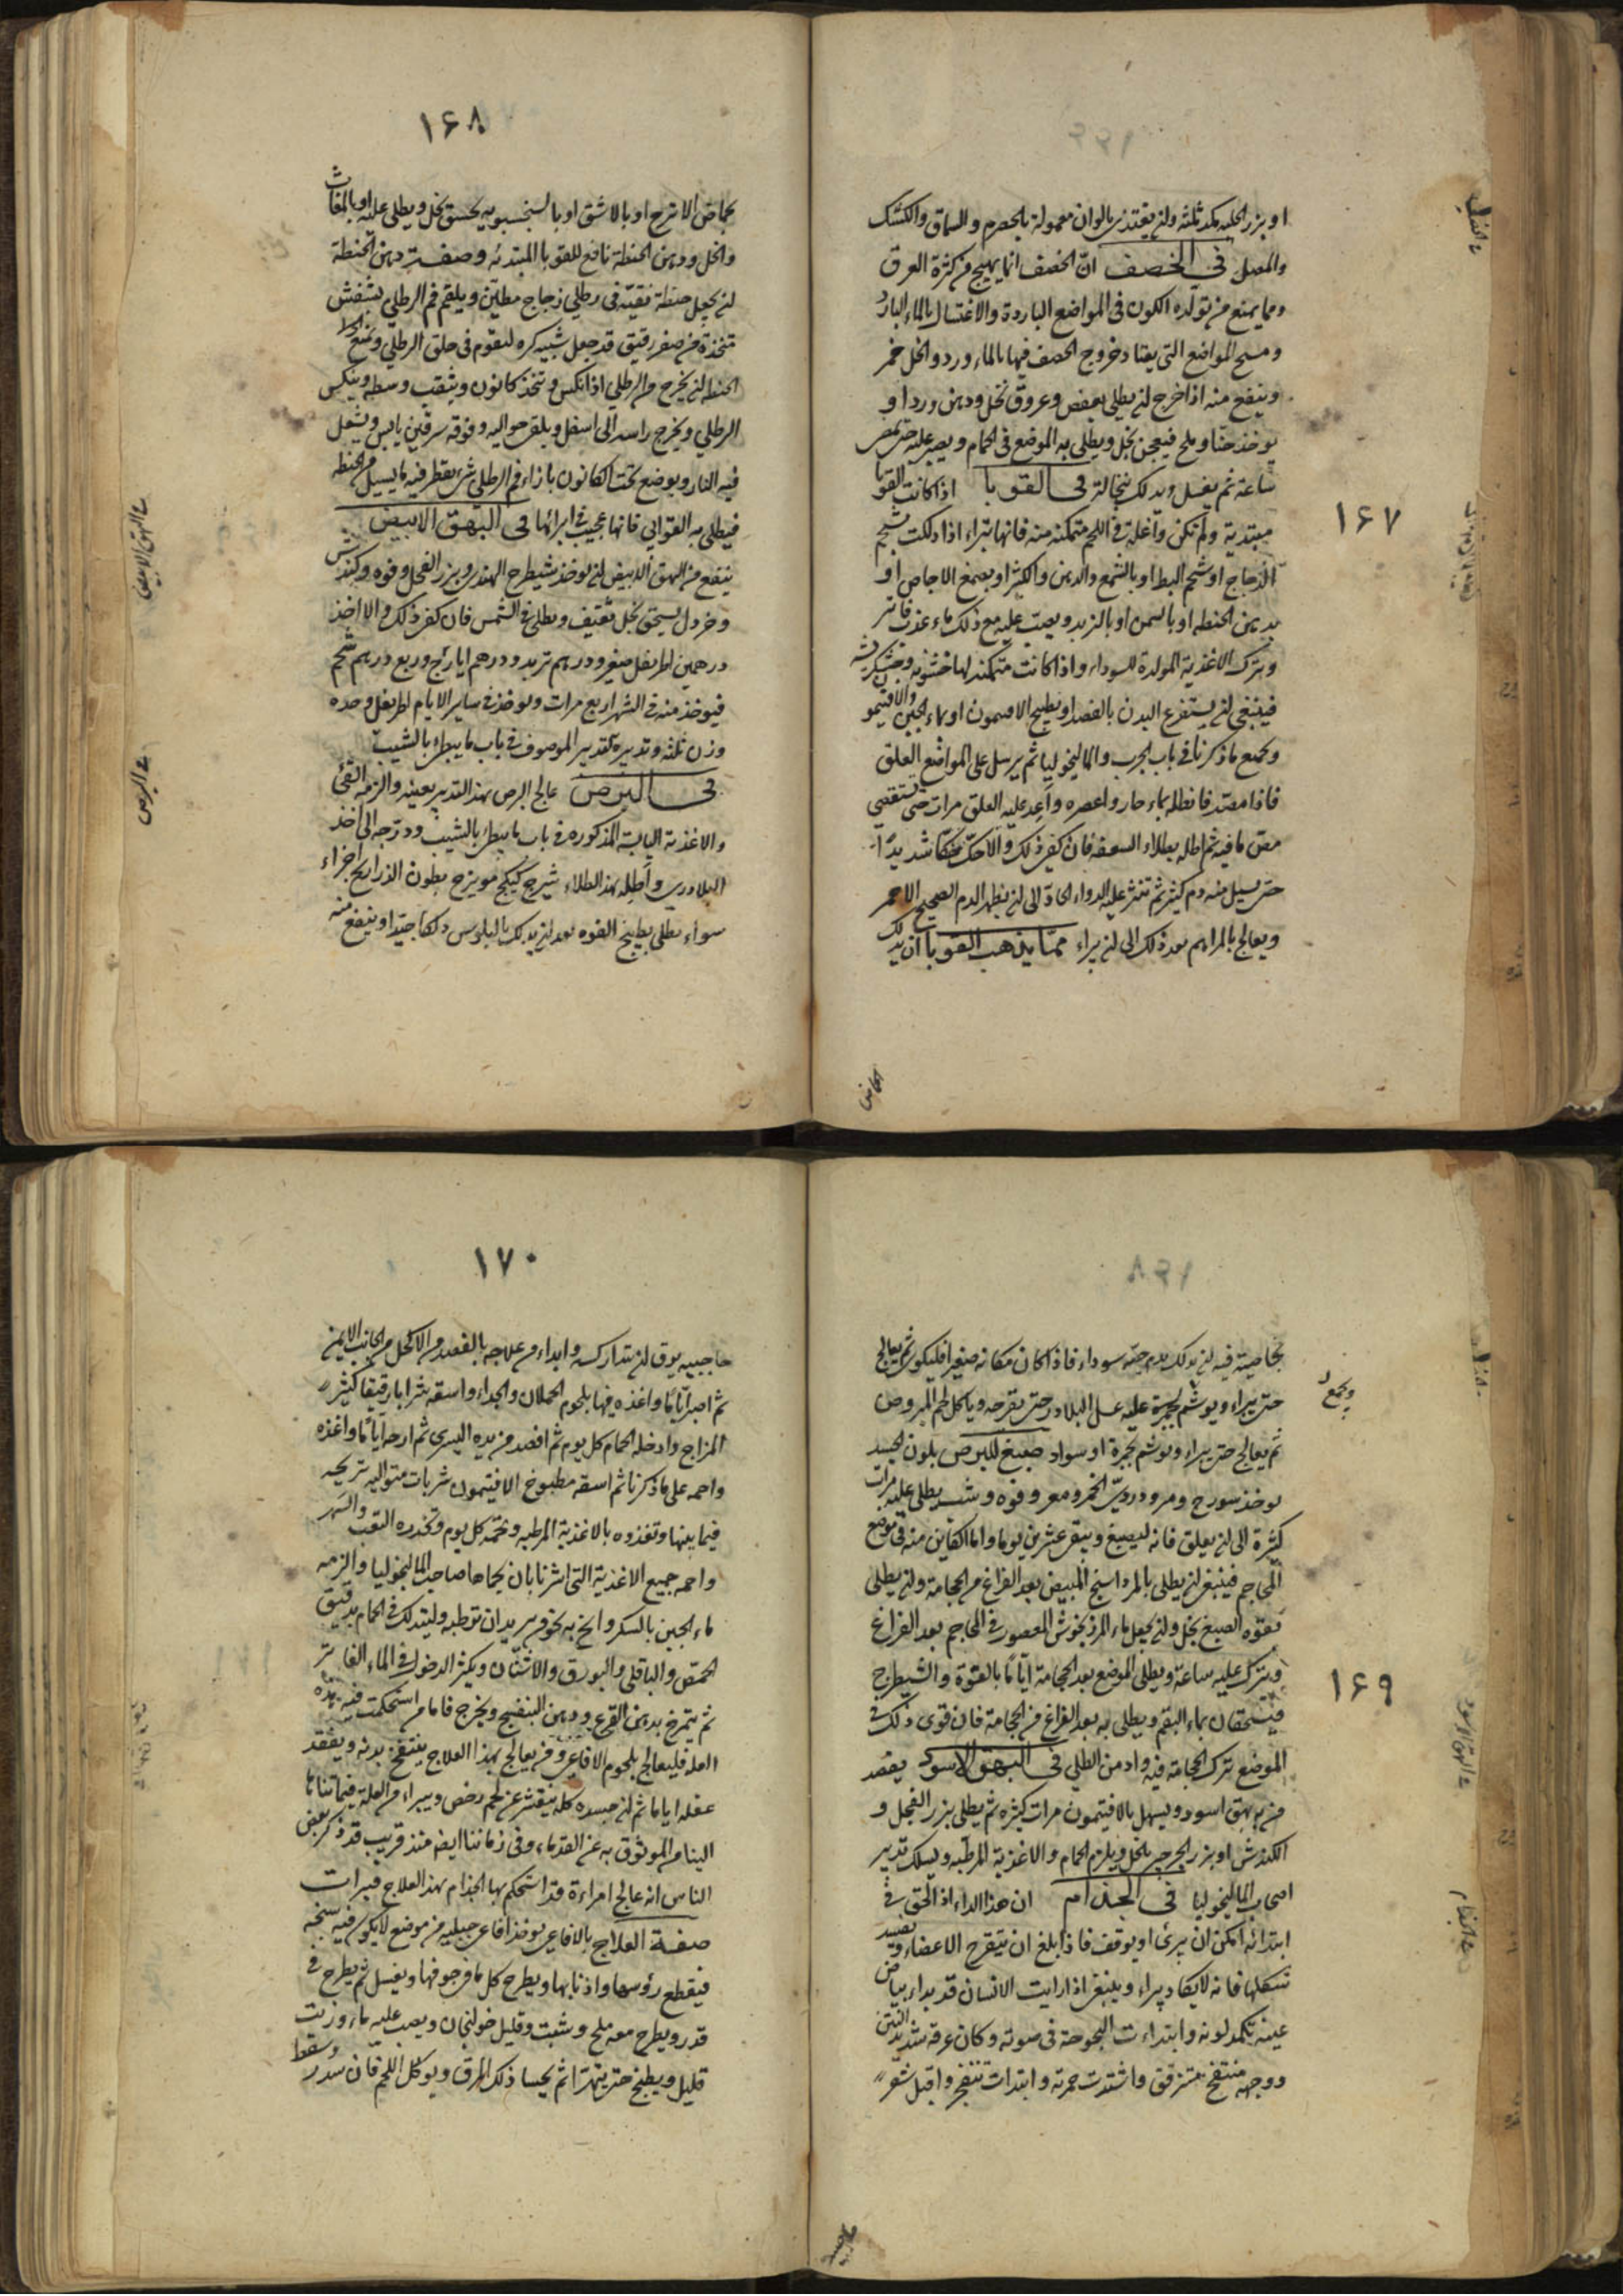 او بزر الحلبه مكد ثلثه وان يغتذى بالوان معمولة بالحصرم والسماق والكشك
والمصل فى الحصف ان الحصف انما يهيج من كثرة العرق
ومما يمنع من تولده الكون فى المواضع الباردة والاغتسال بالماء البارد
ومسح المواضع التى يعتاد خروج الحصف فيها بالماء ورد والخل خمر
وينفع منه اذا خرج ان يطلى بعفص وعروق بخل ودهن ورد او
يوخذ حنا وملح فيعجن بخل ويطلى به الموضع فى الحمام ويصبر عليه حتى تمص
ساعة ثم يغسل ويدلك بنخالة فى القوبا اذا كانت القوبا
مبتدية ولم تكن واغلة فى اللحم متمكنه منه فانها تبراء اذا دلكت بشحم
الدجاج او شحم البط او بالشمع والدهن والكثيرا وبصمغ الاجاص او
بدهن الحنطه او بالسمن او بالزبد ويصب عليه مع ذلك ماء عذب فاتر
ويترك الاغذية المولدة للسوداء واذا كانت متمكنه لها خشونه وخشكريشه
فينبغى ان يستفرغ البدن بالفصد او بطبيخ الافتيمون او بماء الجبن والافتيمون
وجميع ما ذكرنا فى باب الجرب والماليخوليا ثم يرسل على المواضع العلق
فاذا امصته فانطله بماء حار واعصره واعد عليه العلق مرات حتى تستقصى
مص ما فيه ثم اطله بطلاء السعفه فان كفى ذلك والا حكه حكا شديدا
حتى يسيل منه دم كثير ثم تنثر عليه الدواء الحاد الى ان يظهر الدم الصحيح الاحمر
ويعالج بالمراهم بعد ذلك الى ان يبراء مما يذهب القوبا ان يدلك
١۶٧
١۶٨
بحماض الاترج او بالاشق او بالسنحسبويه يسحق بخل ويطلى عليه او بالمغاث
والخل ودهن الحنطة نافع للقوبا المبتدئه وصفت دهن الحنطة
ان يجعل حنطة نقية فى رطلى زجاج مطين ويلقم فم الرطلى بتنفش
تتخذه من صفر رقيق قد جعل شبيه كره ليقوم فى حلق الرطلى ويمنع
الحنطه ان يخرج من الرطلى اذا نكس وتتخذ كانون ويثقب وسطه وينكس
الرطلى ويخرج راسه الى اسفل ويلقى حواليه وفوقه سرقين يابس ويشعل
فيه النار ويوضع تحت الكانون بازاء فم الرطلى شئ يقطر فيه ما يسيل من الحنطه
فيطلى به القوابى فانها عجيب فى ابرائها فى البهق الابيض
ينفع من البهق الابيض ان يوخذ شيطرج الهندى وبزر الفجل وفوه وكندش
وخردل يسحق بخل ثقيف ويطلى فى الشمس فان كفى ذلك والا اخذ
درهمين اطريفل صغير ودرهم تربد ودرهم ايارج وربع درهم شحم
فيوخذ منه فى الشهر اربع مرات ويوخذ فى ساير الايام اطريفل وحده
وزن ثلثه وتدبيره كتدبير الموصوف فى باب ما يبطئ بالشيب
فى البرص عالج البرص بهذا التدبير بعينه والزمه القئ
والاغذية اليابسة المذكوره فى باب ما يبطئ بالشيب ودرجه الى اخذ
البلادرى واطله بهذا الطلاء شيرج كبيكج مويزج بطون الذراريح اجزاء
سواء يطلى بطبيخ الفوه بعد ان يدلك بالبلوس دلكا جيدا وينفع منه
فى البهق الابيض
فى البرص
١۶٩
بخاصية فيه ان يدلك بدم حية سوداء فاذا كان مكانه صغيرا فليكوى ثم يعالج
حتى يبراء ويوشم بحمرة عليه عسل البلادر حتى يقرحه وياكل لحم المبروص
ثم يعالج حتى يبراء ويوشم بحمرة او سواد صبيغ للبرص بلون الجسد
يوخذ سورج ومر ودردى الخمر ومغر وفوه وشب يطلى عليه مرات
كثيرة الى ان يعلق فانه ليصبغ ويبقى عشرين يوما واما الكاين منه فى موضع
المحاجم فينبغى ان يطلى بالمرداسنج المبيض بعد الفراغ من الحجامة وان يطلى
بفوه الصبغ بخل وان يجعل ماء المرزنجوش المعصور فى المحاجم بعد الفراغ
ويترك عليه ساعة ويطلى الموضع بعد الحجامة اياما بالفوة والشيطرج
فيسحقان بماء البقم ويطلى به بعد الفراغ من الحجامة فان قوى ذلك فى
الموضع ترك الحجامة فيه وادمن الطلى فى البهق الاسود يفصد
من به بهق اسود ويسهل بالافتيمون مرات كثيره ثم يطلى ببزر الفجل و
الكندش او بزر الجرجير بالخل ويلزم الحمام والاغذية المرطبه ويسلك تدبير
اصحاب الماليخوليا فى الجذام ان هذا الداء اذا لحق فى
ابتدائه امكن ان يبرئ او يوقف فاذا بلغ ان يتقرح الاعضاء ويفسد
شكلها فانه لا يكاد يبراء وينبغى اذا رايت الانسان قد بداء بياض
عينه تكمد لونه وابتداءت البحوحة فى صوته وكان عرقه شديد النتن
ووجهه منتفخ متزقق واشتدت حمرته وابتدات تنفخ واقبل شعر
١٧٠
حاجبيه يرق ان تتداركه وابداء من علاجه بالفصد من الاكحل من الجانب الايمن
ثم اصبر اياما واغذه فيها بلحوم الحملان والجداء واسقه شرابا رقيقا كثير
المزاج وادخله الحمام كل يوم ثم افصد من يده اليسرى ثم ارحه اياما واغذه
واحمه على ما ذكرنا ثم اسقه مطبوخ الافتيمون شربات متواليه تريحه
فيما بينها وتغذوه بالاغذية المرطبه وتحممه كل يوم وتحذره التعب والسهر
واحمه جميع الاغذية التى اشرنا بان يحماها صاحب الماليخوليا والزمه
ماء الجبن بالسكر وانح به نحو من يريد ان ترطبه وليتدلك فى الحمام بدقيق
الحمص والباقلى والبورق والاشنان ويكثر الدخول فى الماء الفاتر
ثم يتمرخ بدهن القرع ودهن البنفسج ويخرج فاما من استحكمت فيه هذه
العلة فليعالج بلحوم الافاعى ومن يعالج بهذا العلاج ينتفخ بدنه ويفقد
عقله اياما ثم ان جسده كله يتقشر عن لحم رخص ويبراء من العلة فيما تناها
الينا من الموثوق به عن القدماء وفى زماننا ايضا منذ قريب قد ذكر بعض
الناس انه عالج امراءة قد استحكم بها الجذام بهذا العلاج فبرات
صفة العلاج بالافاعى يوخذ افاعى جبليه من موضع لا يكون فيه سبخه
فيقطع رؤسها واذنابها ويطرح كل ما فى جوفها ويغسل ثم يطرح فى
قدر ويطرح معه ملح وشبت وقليل خولنجان ويصب عليه ماء وزيت
قليل ويطبخ حتى يتهرا ثم يحسا ذلك المرق ويوكل اللحم فان سدر وسقط